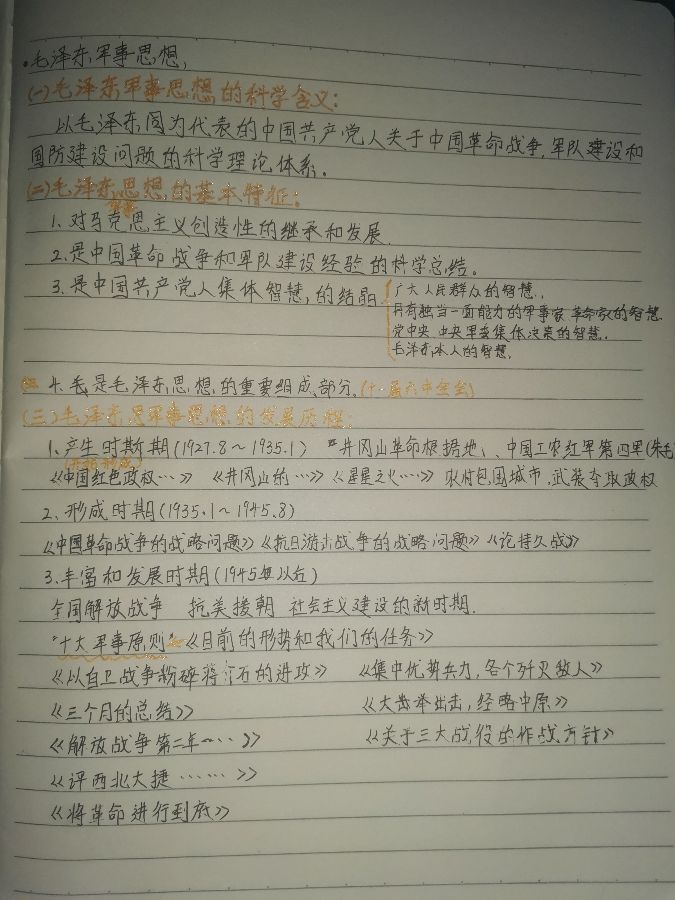 ·毛泽东军事思想,
(一)毛泽东军事思想的科学含义:
以毛泽东同为代表的中国共产党人关于中国革命战争,军队建设和
国防建设问题的科学理论体系.
(二)毛泽东思想的基本特征:
军事
1.对马克思主义创造性的继承和发展.
2.是中国革命战争和军队建设经验的科学总结.
3.是中国共产党人集体智慧,的结晶
广大人民群众的智慧.
具有独当一面能力的军事家 革命家的智慧.
党中央 中央军委集体决策的智慧.
毛泽东本人的智慧.
4.是毛泽东思想的重要组成部分.(十一届六中全会)
(三)毛泽东军事思想的发展历程:
1.产生时期(1927.8~1935.1) 井冈山革命根据地、中国工农红军第四军(朱毛
《中国红色政权…》 《井冈山的…》 《星星之火…》 农村包围城市,武装夺取政权
2.形成时期(1935.1~1945.8)
《中国革命战争的战略问题》《抗日游击战争的战略问题》《论持久战》
3.丰富和发展时期(1945以后)
全国解放战争 抗美援朝 社会主义建设的新时期.
"十大军事原则"《目前的形势和我们的任务》
《以自卫战争粉碎蒋介石的进攻》 《集中优势兵力,各个歼灭敌人》
《三个月的总结》 《大举出击,经略中原》
《解放战争第二年……》 《关于三大战役的作战方针》
《评西北大捷……》
《将革命进行到底》